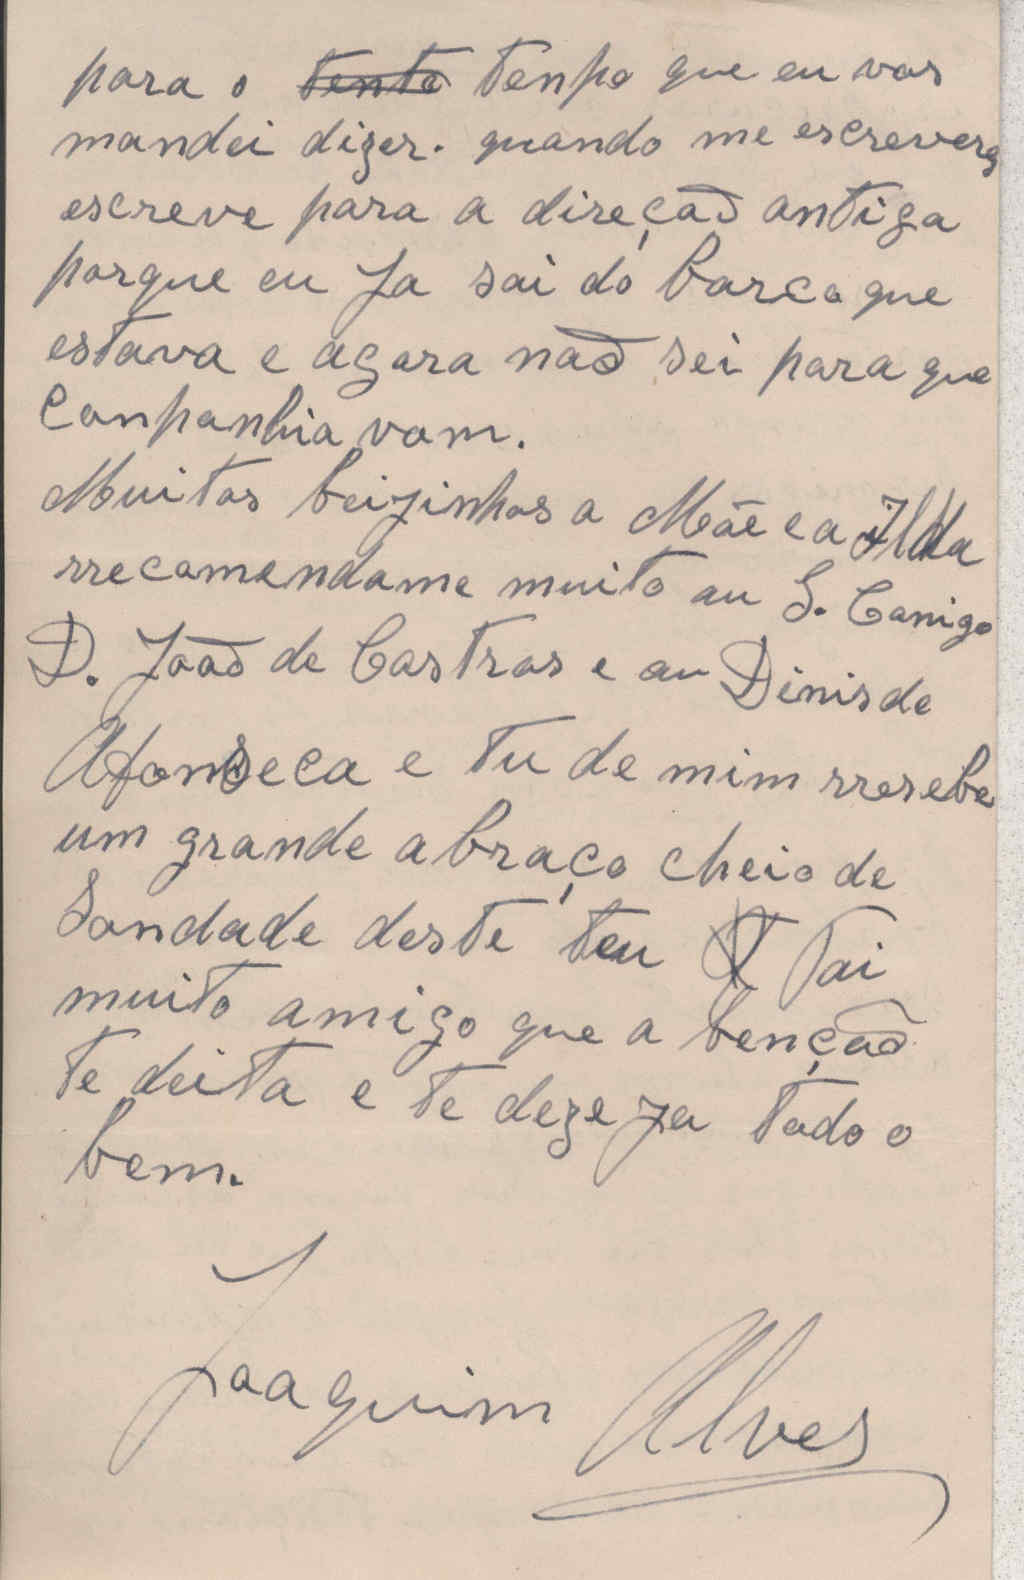 para o tento tenpo que eu vos
mandei dizer. quando me escreveres
escreve para a direção antiga
porque eu Ja sai do barco que
estava e agora não sei para que
Conpanhia vom.
Muitos beijinhos a Mãe e a Ilda
rrecomendame muito au S. Conigo
D. João de Castros e au Dinis de
Afonseca e tu de mim rresebe
um grande abraço cheio de
Sondade deste teu Pai
muito amigo que a benção
te deita e te dezeja todo o
bem.
Joaquim Alves